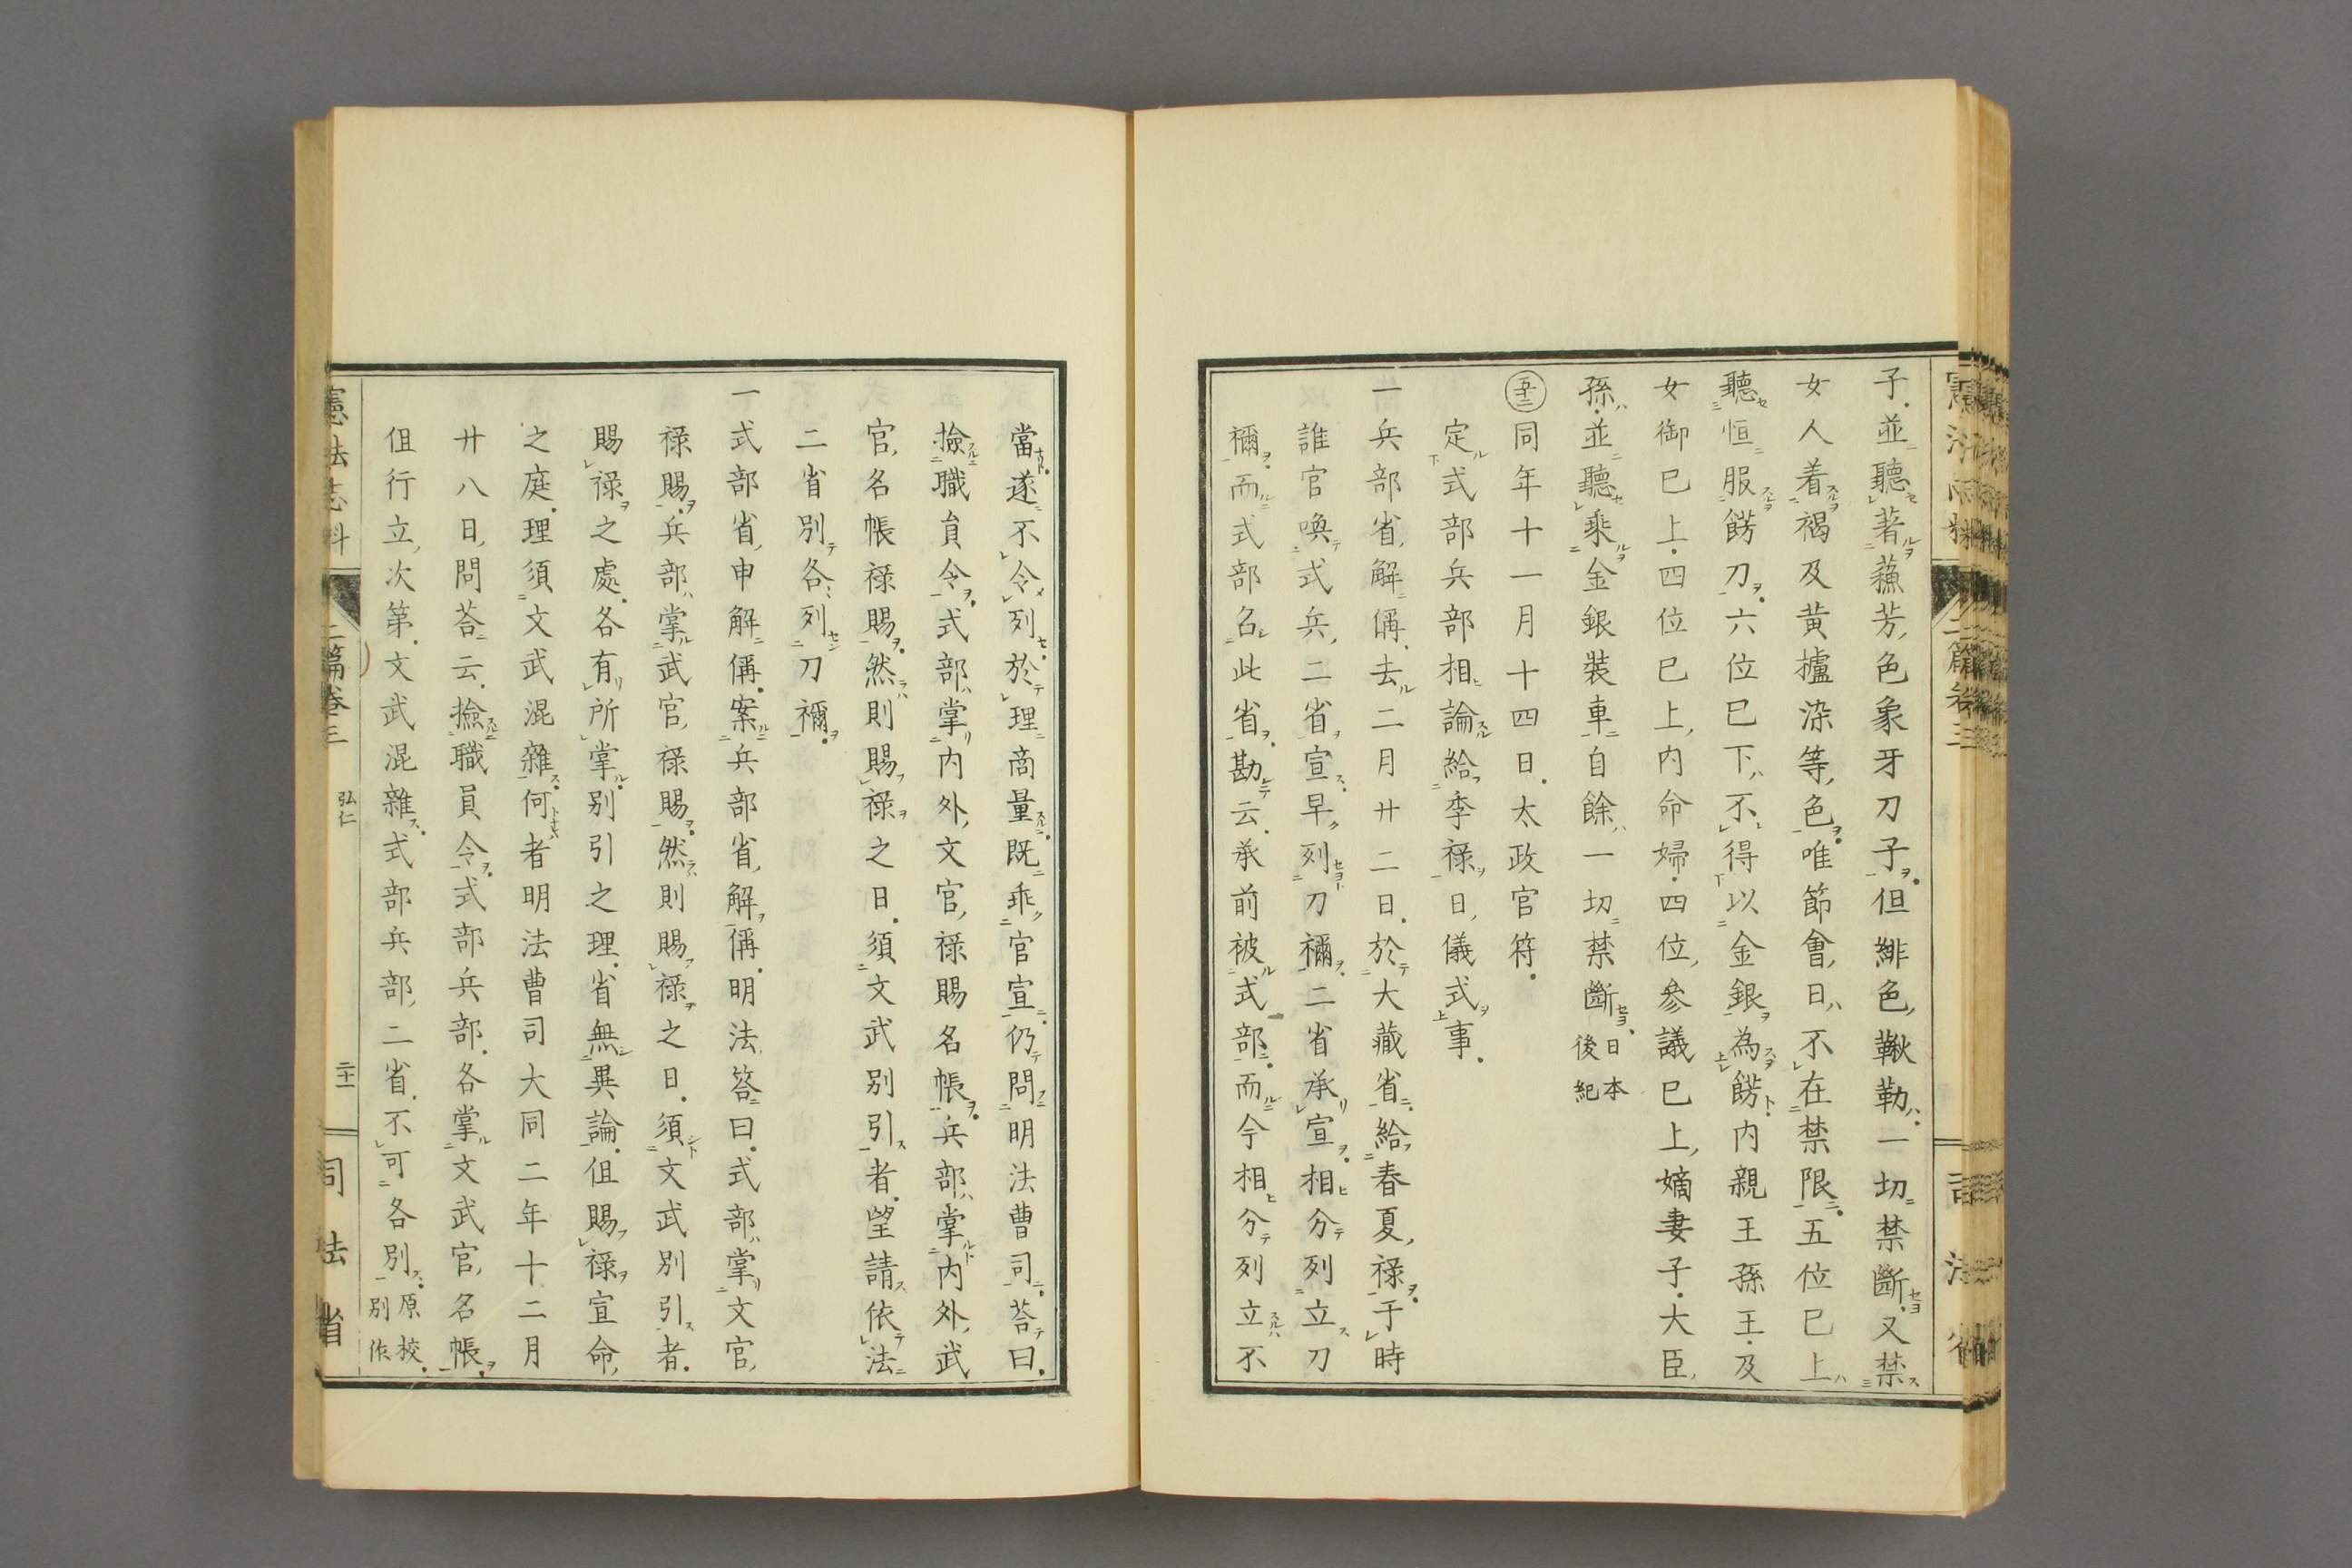 子並聽著蘓芳色象牙刀子但緋色鞦勒一切禁斷又禁
女人着褐及黄櫨染等色唯節會日不在禁限五位已上
聽恒服餝刀六位已下不得以金銀為餝内親王孫王及
女御已上四位已上内命婦四位參議已上嫡妻子大臣
孫並聽乘金銀装車自餘一切禁斷日本後紀
同年十一月十四日太政官符
定式部兵部相論給季禄日儀式事
一兵部省解偁去二月廿二日於大藏省給春夏禄于時
誰官喚式兵二省宣早列刀禰二省承宣相分列立刀
禰而式部召此省勘云承前被式部而今相分列立不
當遂不令列於理商量既乖官宣仍問明法曹司荅曰
撿職員令式部掌内外文官禄賜名帳兵部掌内外武
官名帳禄賜然則賜禄之日須文武别引者望請依法
二省別各列刀禰
一式部省申解偁案兵部省解偁明法答曰式部掌文官
禄賜兵部掌武官禄賜然則賜禄之日須文武别引者
賜禄之處各有所掌别引之理省無異論伹賜禄宣命
之庭理須文武混雜何者明法曹司大同二年十二月
廿八日問荅云撿職員令式部兵部各掌文武官名帳
伹行立次第文武混雜式部兵部二省不可各別原校別作
憲法志料 二篇卷三 弘仁 二十一 司法省